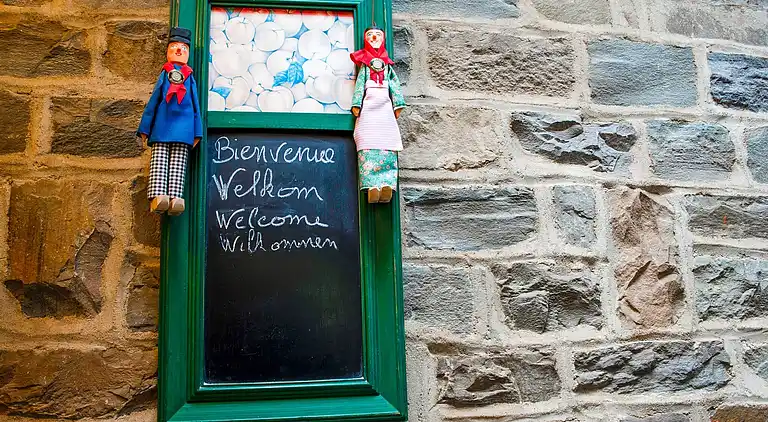 Bienvenue
Welkom
Welcome
Willkommen